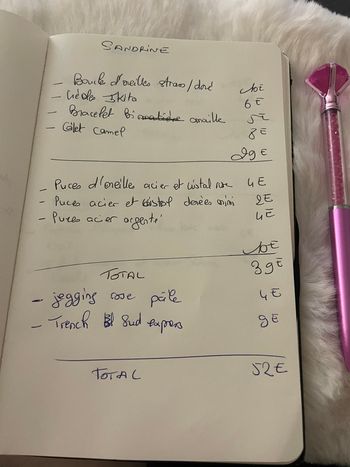 SANDRINE
- Boucle d'oreilles strass/doré 10€
- Créoles Ikita 6€
- Bracelet Bi maille 5€
- Collet Camel 8€
29€
- Puces d'oreille acier et cristal rose 4€
- Puces acier et cristal dorées mini 2€
- Puces acier argenté 4€
10€
TOTAL 39€
- jegging rose pâle 4€
- Trench Sud express 9€
TOTAL 52€